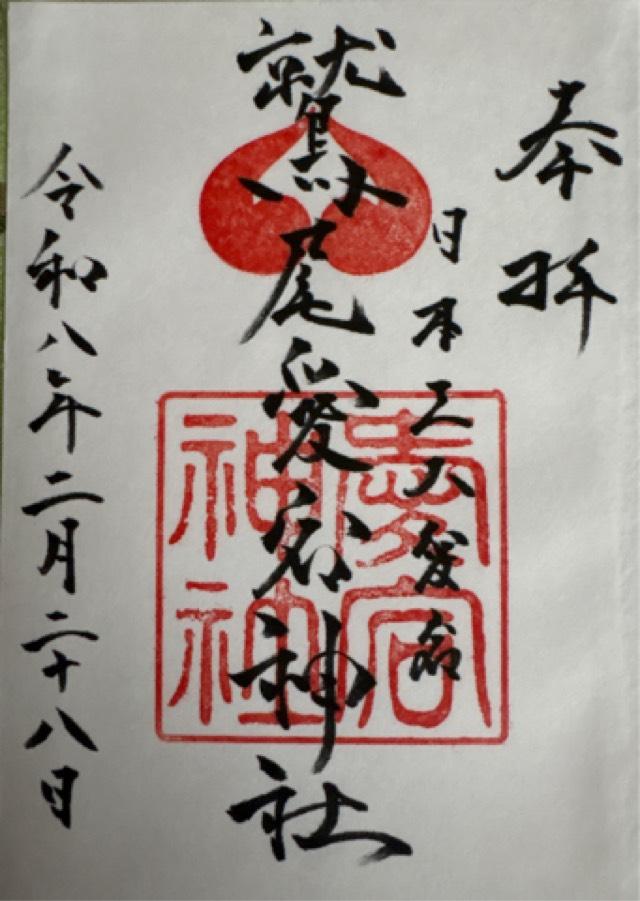 奉拝
日本三大愛宕
鷲尾愛宕神社
愛宕
神社
令和八年二月二十八日